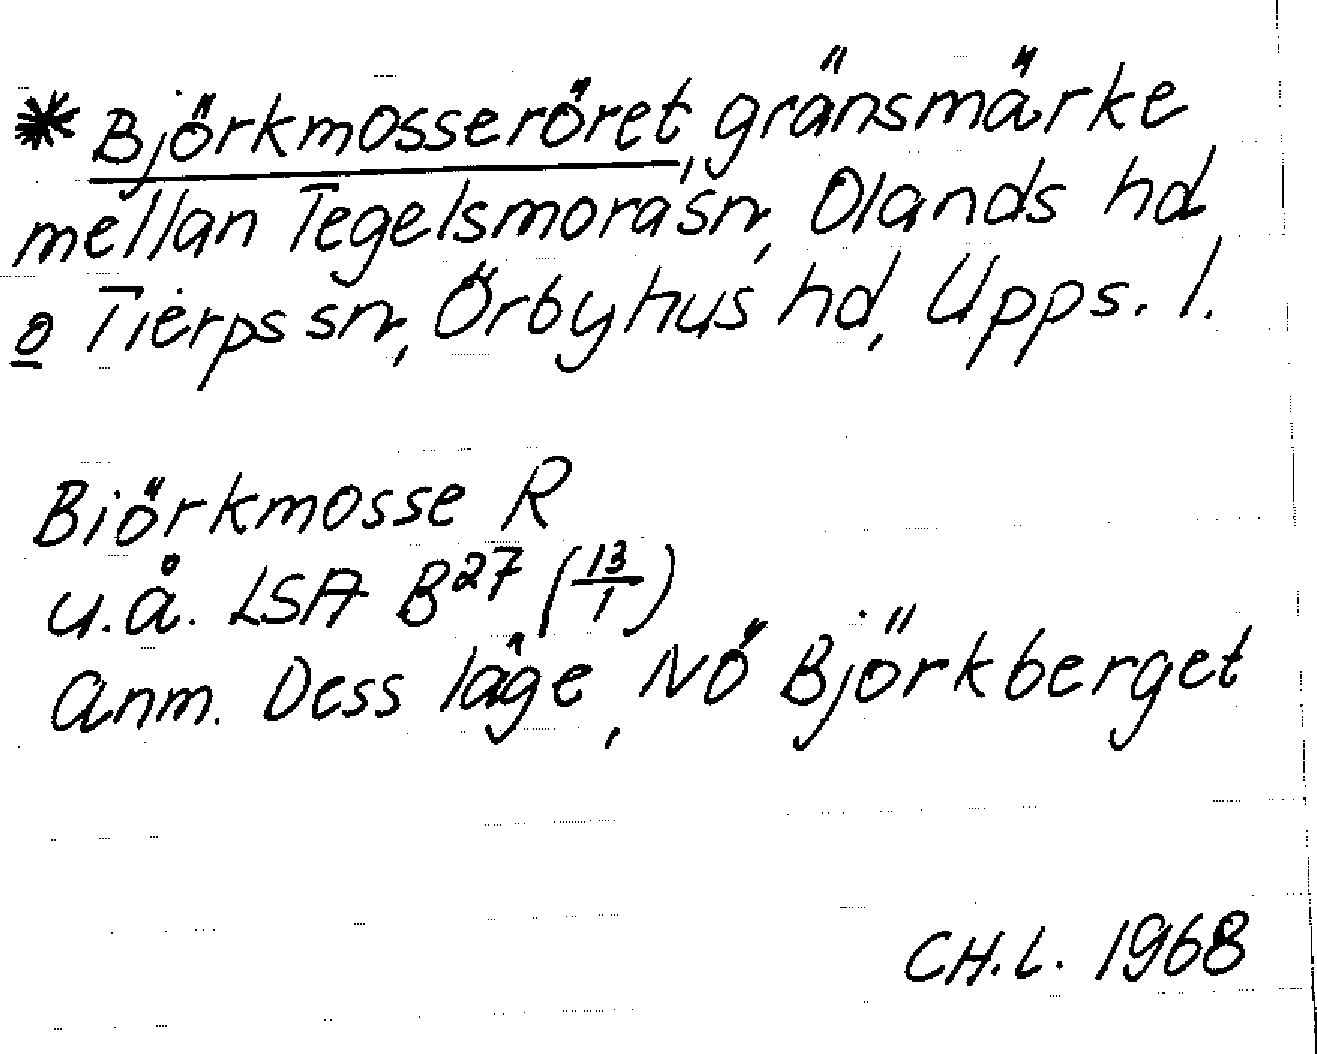 * Björkmosseröret, gränsmärke
mellan Tegelsmora sn, Olands hd
o Tierps sn, Örbyhus hd, Upps. l.
Biörkmosse R
u.å. LSA B27 (13/1)
Anm. Dess läge, NÖ Björkberget
CH.L. 1968